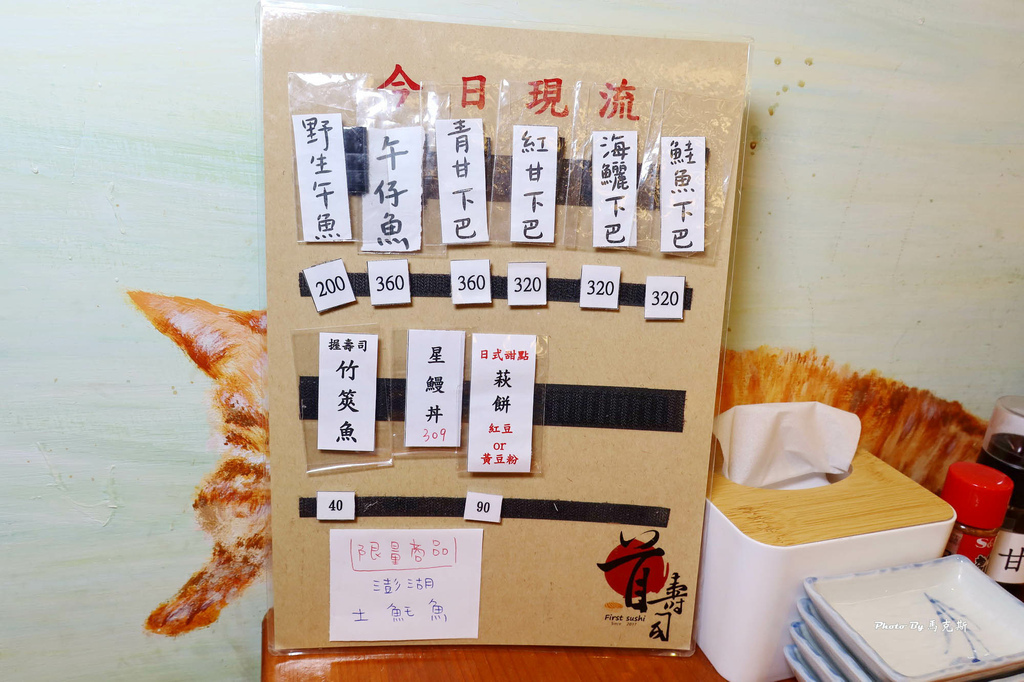 今日現流
野生午魚
午仔魚
青甘下巴
紅甘下巴
海鱺下巴
鮭魚下巴
200
360
360
320
320
320
握壽司
竹筴魚
星鰻丼
309
日式甜點
萩餅
紅豆
or
黃豆粉
40
90
限量商品
澎湖
土魠魚
首壽司
First sushi
Since 2017
S
甘
Photo By 馬克斯